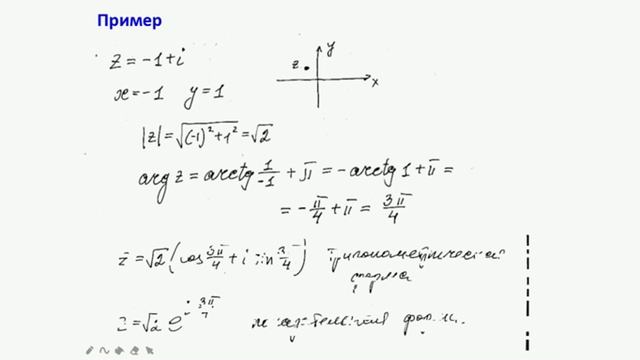 Пример
z = -1 + i
x = -1 y = 1
z y x
|z| = √((-1)² + 1²) = √2
arg z = arctg 1/-1 + π = -arctg 1 + π =
= -π/4 + π = 3π/4
z = √2 (cos 3π/4 + i sin 3/4) тригонометрическая
форма
z = √2 e^(i 3π/4)